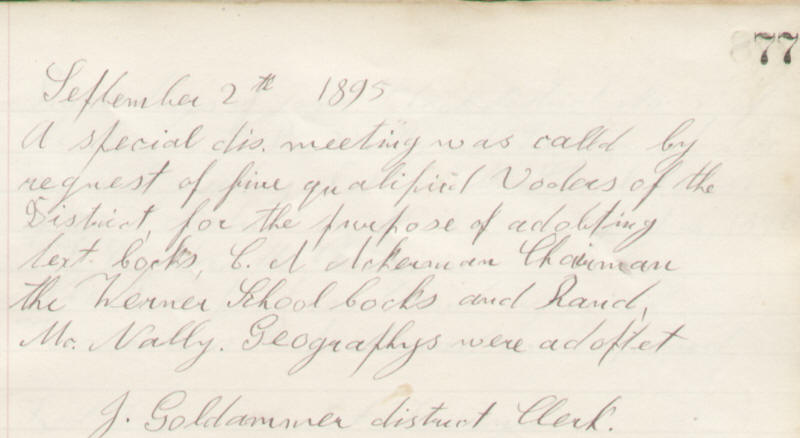 77
September 2th 1895
A special dis. meeting was calld by
request of five qualifiid Voders of the
District, for the purpose of adobting
text books, C. A Ackerman Chairman
the Werner School books and Rand,
Mc. Nally. Geographys were adoptet
J. Goldammer district Clerk.